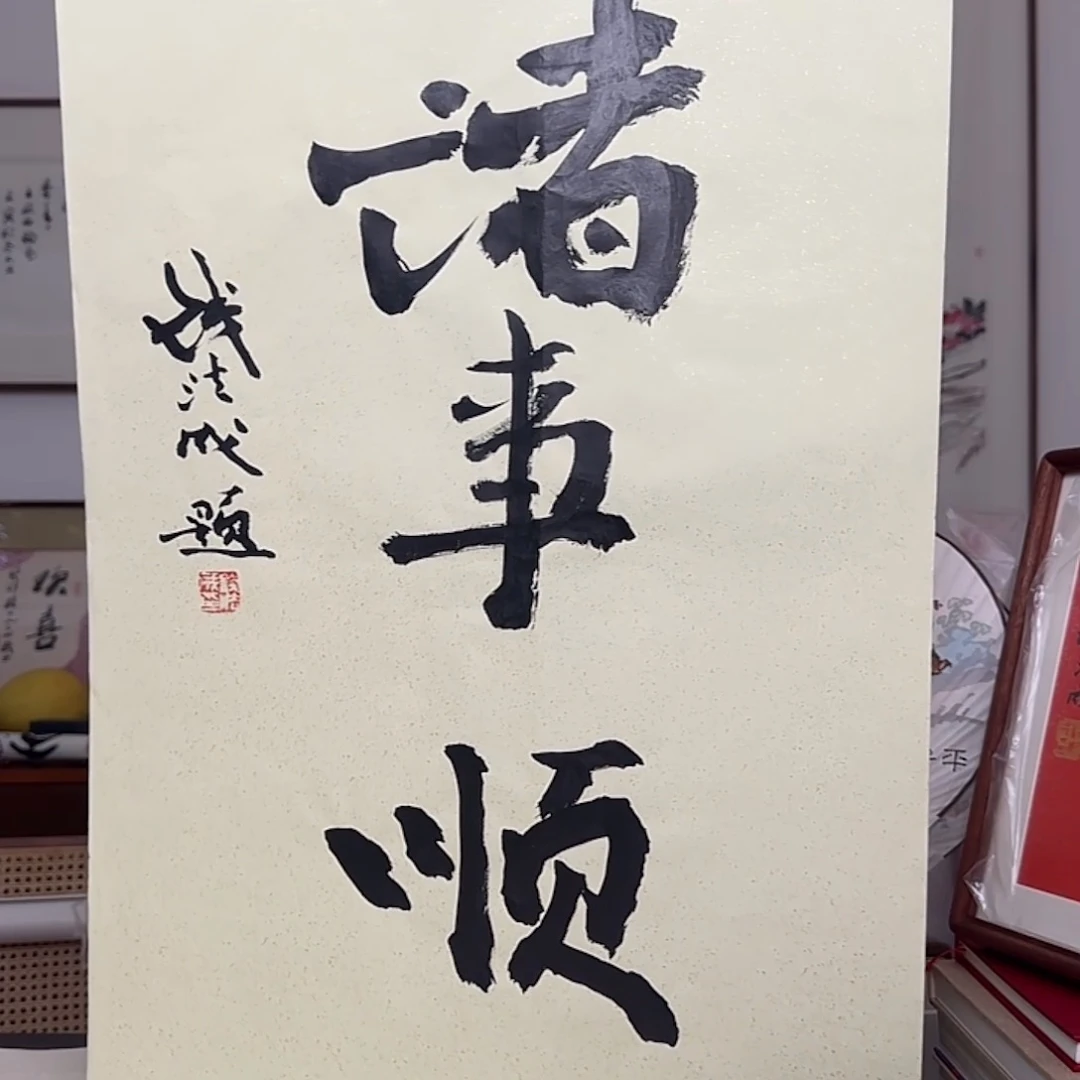 诸事顺
钱法成题
欢喜
平